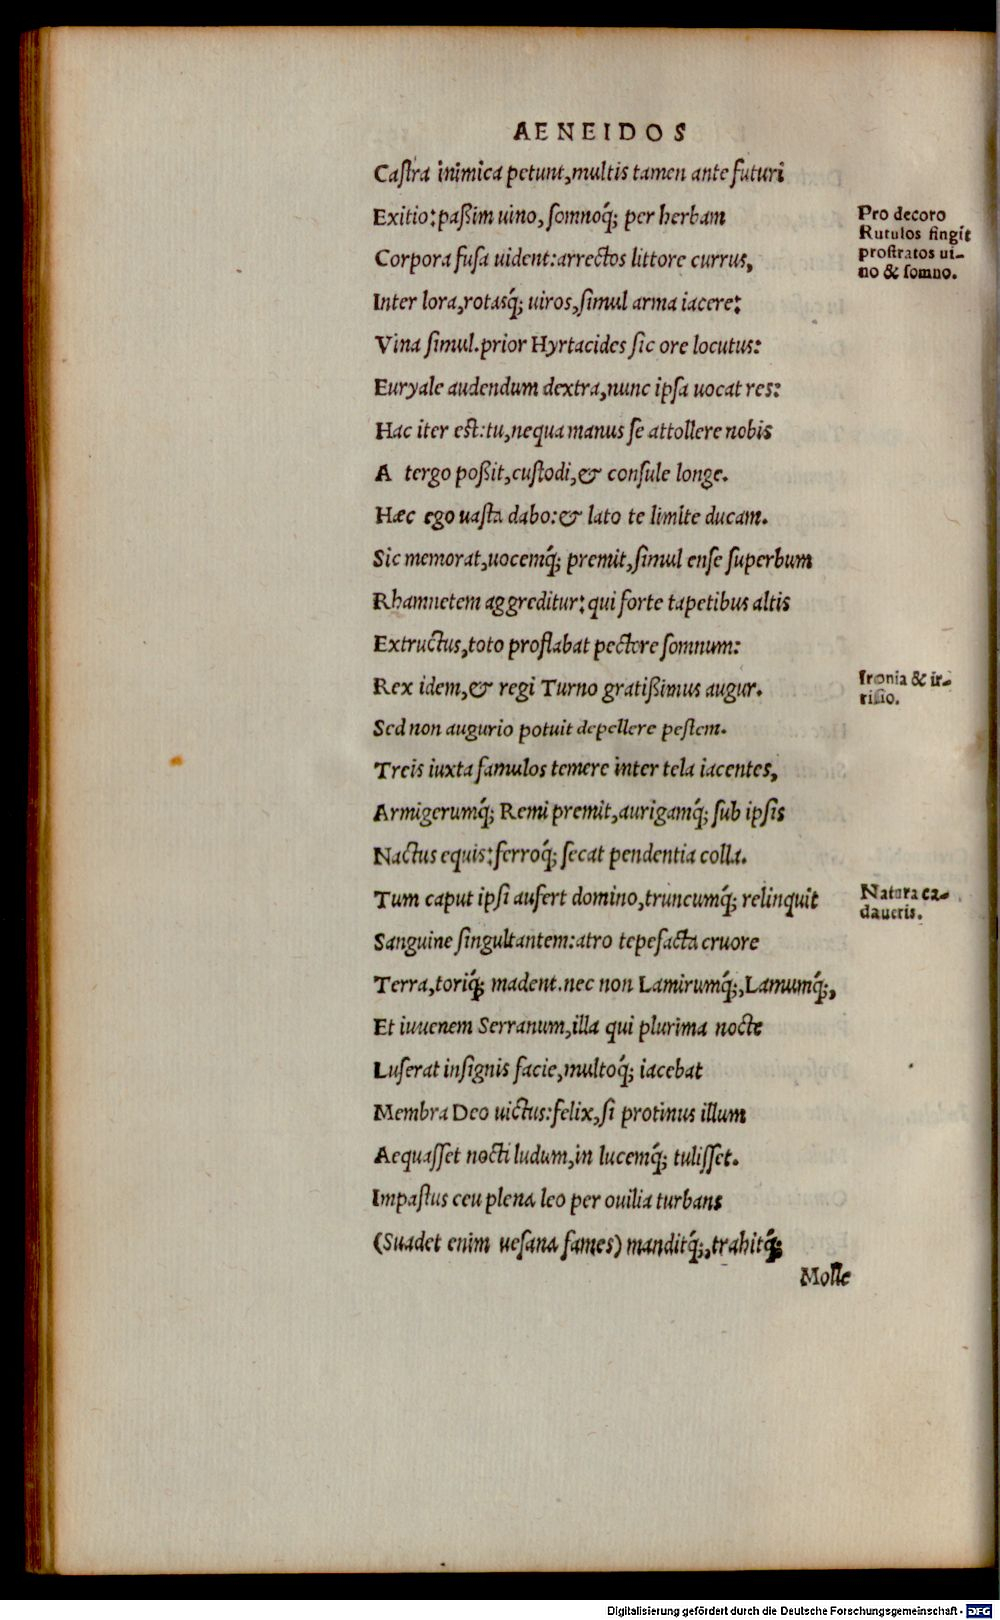 AENEIDOS
Castra inimica petunt, multis tamen ante futuri
Exitio: paßim uino, somnoq́; per herbam
Corpora fusa uident: arrectos littore currus,
Inter lora, rotasq́; uiros, simul arma iacere:
Vina simul. prior Hyrtacides sic ore locutus:
Euryale audendum dextra, nunc ipsa uocat res:
Hac iter est: tu, nequa manus se attollere nobis
A tergo poßit, custodi, & consule longe.
Hæc ego uasta dabo: & lato te limite ducam.
Sic memorat, uocemq́; premit, simul ense superbum
Rhamnetem aggreditur: qui forte tapetibus altis
Extructus, toto proflabat pectore somnum:
Rex idem, & regi Turno gratißimus augur.
Sed non augurio potuit depellere pestem.
Treis iuxta famulos temere inter tela iacentes,
Armigerumq́; Remi premit, aurigamq́; sub ipsis
Nactus equis: ferroq́; secat pendentia colla.
Tum caput ipsi aufert domino, truncumq́; relinquit
Sanguine singultantem: atro tepefacta cruore
Terra, toriq́; madent. nec non Lamirumq́;, Lamumq́;,
Et iuuenem Serranum, illa qui plurima nocte
Luserat insignis facie, multoq́; iacebat
Membra Deo uictus: felix, si protinus illum
Aequasset nocti ludum, in lucemq́; tulisset.
Impastus ceu plena leo per ouilia turbans
(Suadet enim uesana fames) manditq́;, trahitq́;
Molle
Pro decoro
Rutulos fingit
prostratos ui-
no & somno.
Ironia & ir-
risio.
Natura ca-
daueris.
Digitalisierung gefördert durch die Deutsche Forschungsgemeinschaft - DFG